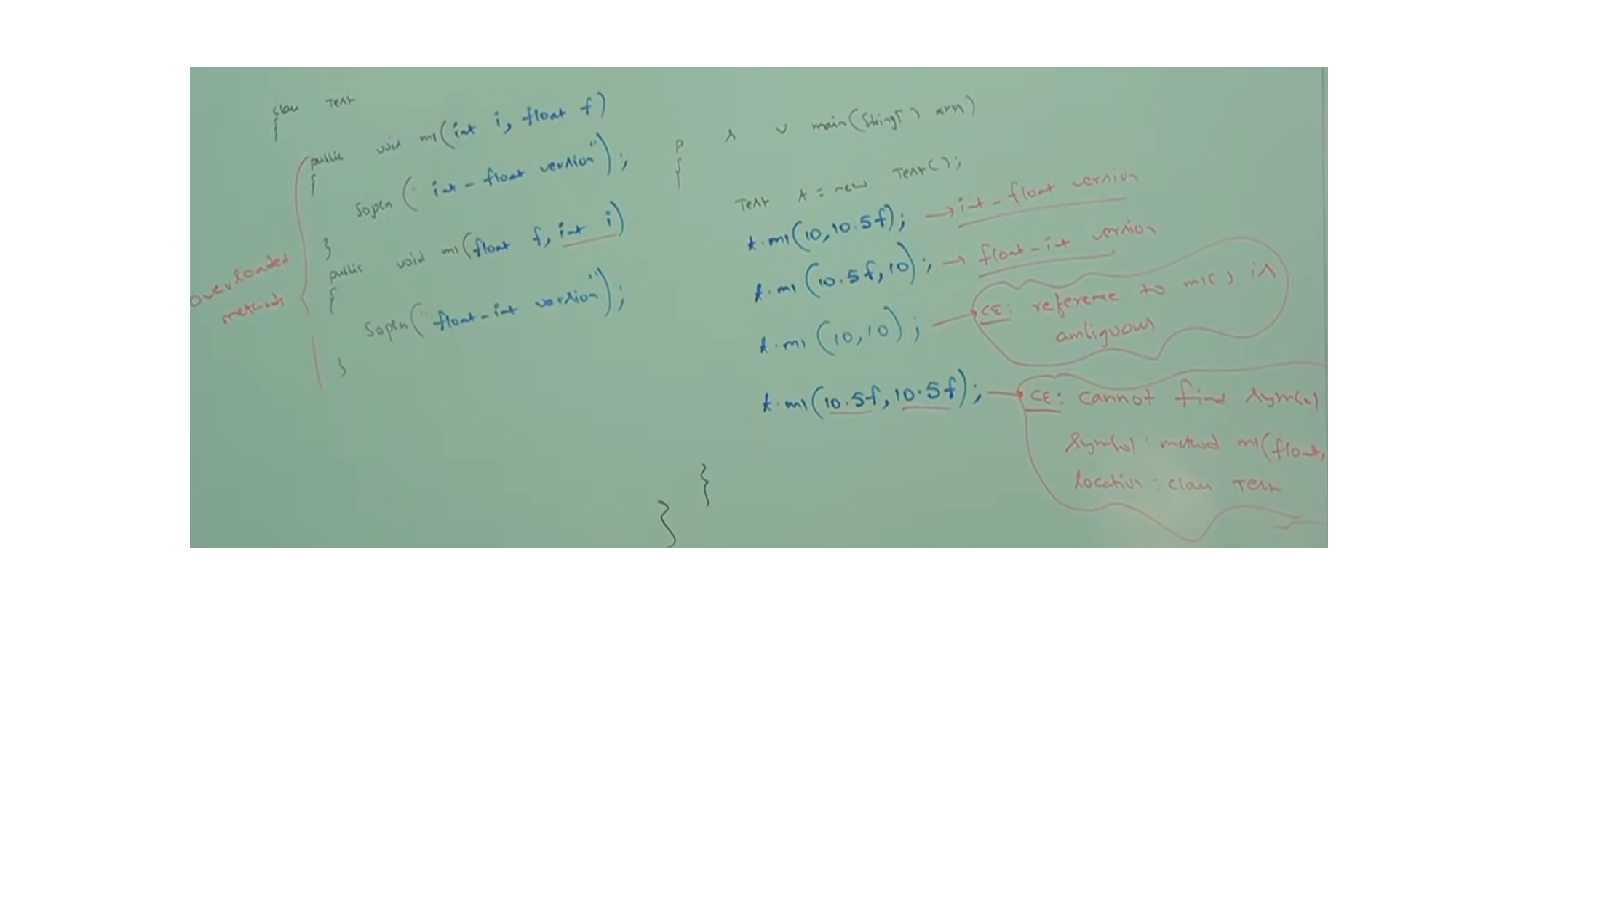 class Test
{
public void m1(int i, float f)
{
Sopln("int-float version");
}
public void m1(float f, int i)
{
Sopln("float-int version");
}
overloaded
methods
p s v main(String[] args)
{
Test t = new Test();
t.m1(10,10.5f); → int-float version
t.m1(10.5f,10); → float-int version
t.m1(10,10); → CE: reference to m1() is
ambiguous
t.m1(10.5f,10.5f); → CE: cannot find symbol
symbol: method m1(float,
location: class Test
}
}